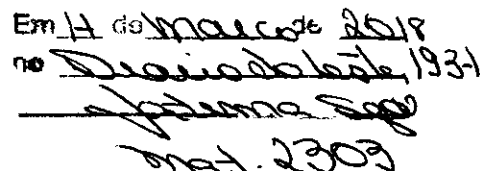 Em 14 de Março de 2018
no Diário do Leste, 1931
mat. 2303